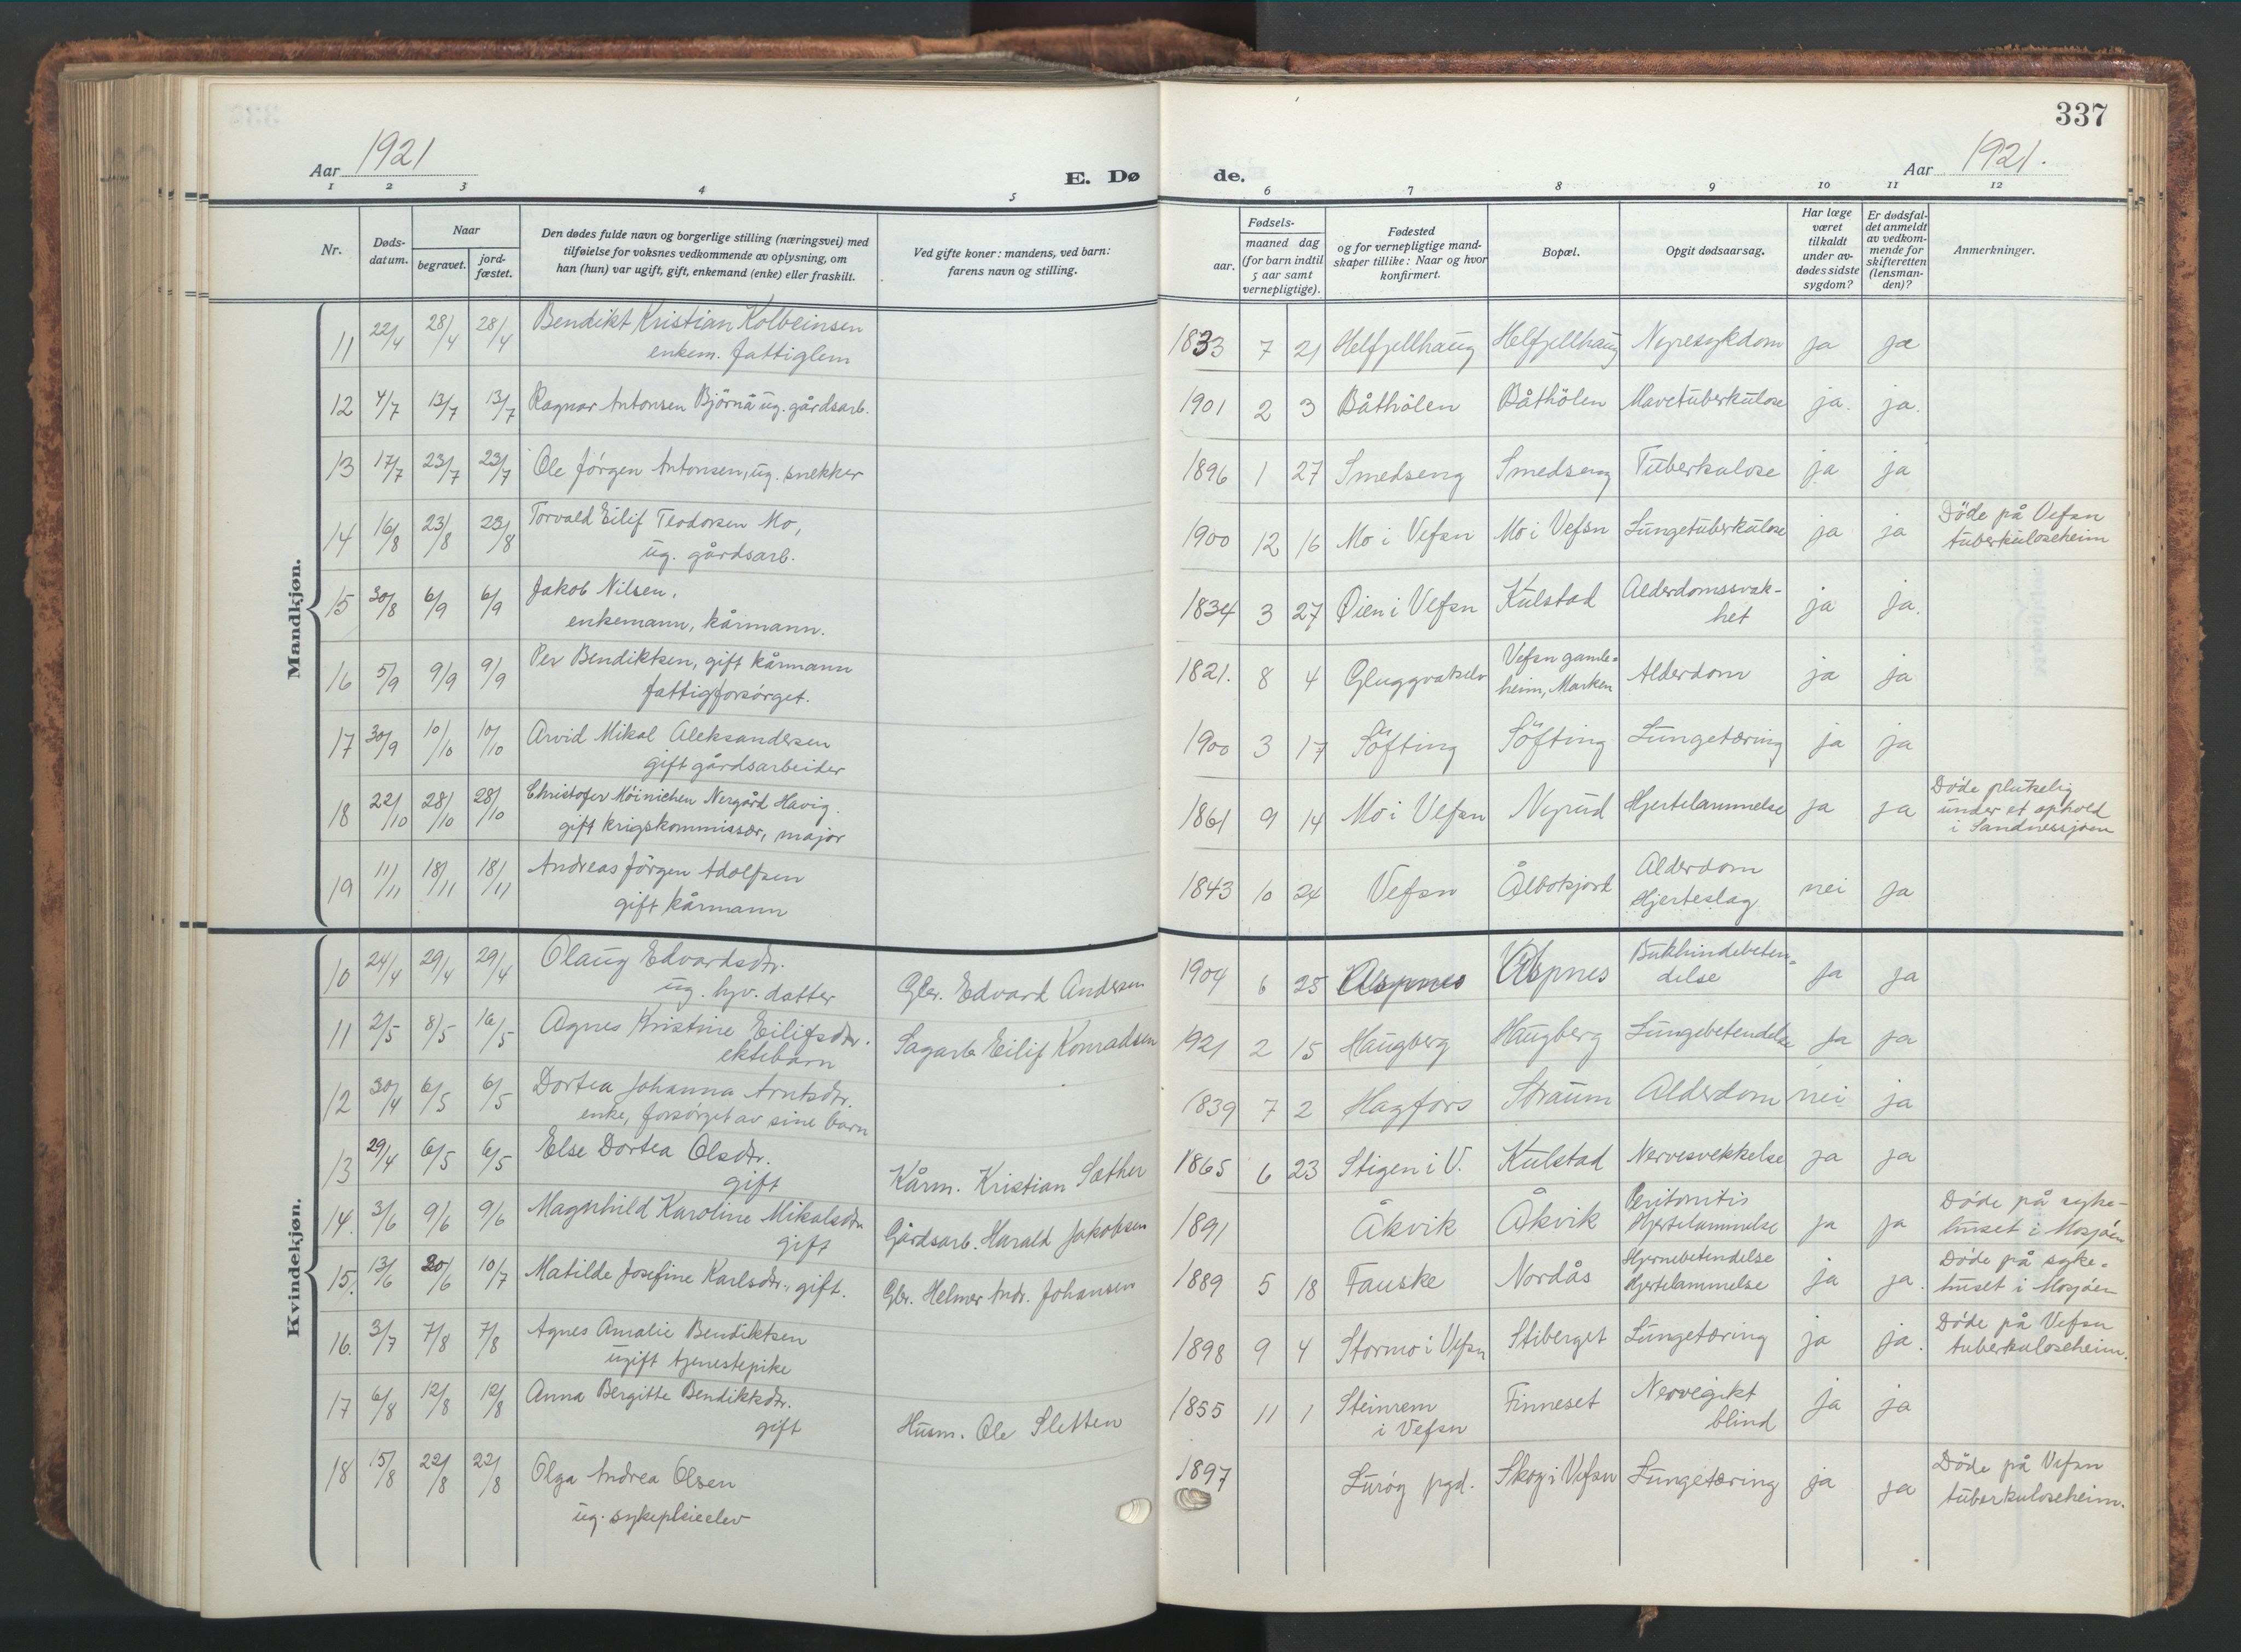 337
Aar 1921
E. Dø
de.
Aar 1921.
1 2 3 4 5 6 7 8 9 10 11 12
Nr.
Døds-
datum.
Naar
begravet.
jord-
fæstet.
Den dødes fulde navn og borgerlige stilling (næringsvei) med
tilføielse for voksnes vedkommende av oplysning, om
han (hun) var ugift, gift, enkemand (enke) eller fraskilt.
Ved gifte koner: mandens, ved barn:
farens navn og stilling.
Fødsels-
aar.
maaned dag
(for barn indtil
5 aar samt
vernepligtige).
Fødested
og for vernepligtige mand-
skaper tillike: Naar og hvor
konfirmert.
Bopæl.
Opgit dødsaarsag.
Har læge
været
tilkaldt
under av-
dødes sidste
sygdom?
Er dødsfal-
det anmeldt
av vedkom-
mende for
skifteretten
(lensman-
den)?
Anmerkninger.
Mandkjøn.
11 22/4 28/4 28/4 Bendikt Kristian Kolbeinsen
enkem. fattiglem
1833 7 21 Helfjellhaug Helfjellhaug Nyresykdom ja ja
12 4/7 13/7 13/7 Ragnar Antonsen Björnå ug. gårdsarb.
1901 2 3 Båthölen Båthölen Mavetuberkulose ja. ja.
13 17/7 23/7 23/7 Ole Jörgen Antonsen, ug. snekker
1896 1 27 Smedseng Smedseng Tuberkulose ja ja
14 16/8 23/8 23/8 Torvald Eilif Teodorsen Mo,
ug. gårdsarb.
1900 12 16 Mo i Vefsn Mo i Vefsn Lungetuberkulose ja ja Döde på Vefsn
tuberkuloseheim
15 30/8 6/9 6/9 Jakob Nilsen,
enkemann, kårmann.
1834 3 27 Øien i Vefsn Kulstad Alderdomssvak-
het ja ja.
16 5/9 9/9 9/9 Per Bendiktsen, gift kårmann
fattigforsörget.
1821. 8 4 Gluggvatselv Vefsn gamle=
heim, Marken Alderdom ja ja
17 30/9 10/10 10/10 Arvid Mikal Aleksandersen
gift gårdsarbeider
1900 3 17 Söfting Söfting Lungetæring ja ja
18 22/10 28/10 28/10 Christofer Möinichen Nergård Havig.
gift krigskommissær, major
1861 9 14 Mo i Vefsn Nyrud Hjertelammelse ja ja Döde plutselig
under et ophold
i Sandnessjøen
19 11/11 18/11 18/11 Andreas Jörgen Adolfsen
gift kårmann
1843 10 24 Vefsn Alderdom
Hjerteslag nei ja
Kvindekjøn.
10 24/4 29/4 29/4 Olaug Edvardsdtr.
ug. hjv. datter Gbr. Edvard Andersen
1904 6 25 Aspnes Aspnes Bukhindebeten=
delse ja ja
11 2/5 8/5 16/5 Agnes Kristine Eilifsdtr.
ektebarn Sagarb. Eilif Konradsen
1921 2 15 Haugberg Haugberg Lungebetendelse ja ja
12 30/4 6/5 6/5 Dortea Johanna Arntsdtr.
enke, forsörget av sine barn
1839 7 2 Hagfors Straum Alderdom nei ja
13 29/4 6/5 6/5 Else Dortea Olsdtr.
gift Kårm. Kristian Sæther
1865 6 23 Stigen i V. Kulstad Nervesvekkelse ja ja
14. 3/6 9/6 9/6 Magnhild Karoline Mikalsdtr
gift Gårdsarb. Harald Jakobsen
1891 Åkvik Åkvik Peritonitis
Hjertelammelse ja ja Döde på syke-
huset i Mosjöen
15. 13/6 20/6 10/7 Matilde Josefine Karlsdtr., gift. Gbr. Helmer Andr. Johansen
1889 5 18 Fauske Nordås Hjernebetendelse
Hjertelammelse ja ja. Döde på syke=
huset i Mosjöen
16. 3/7 7/8 7/8 Agnes Amalie Bendiktsen
ugift tjenestepike
1898 9 4 Stormo i Vefsn Stiberget Lungetæring ja ja. Döde på Vefsn
tuberkuloseheim.
17 6/8 12/8 12/8 Anna Bergitte Bendiktsdtr.
gift Husm. Ole Sletten
1855 11 1 Steinrem
i Vefsn Finneset Nervegikt
blind ja ja
18 15/8 22/8 22/8 Olga Andrea Olsen
ug. sykepleieelev
1897 Luröy pgd. Skog i Vefsn Lungetæring ja ja Döde på Vefsn
tuberkuloseheim.